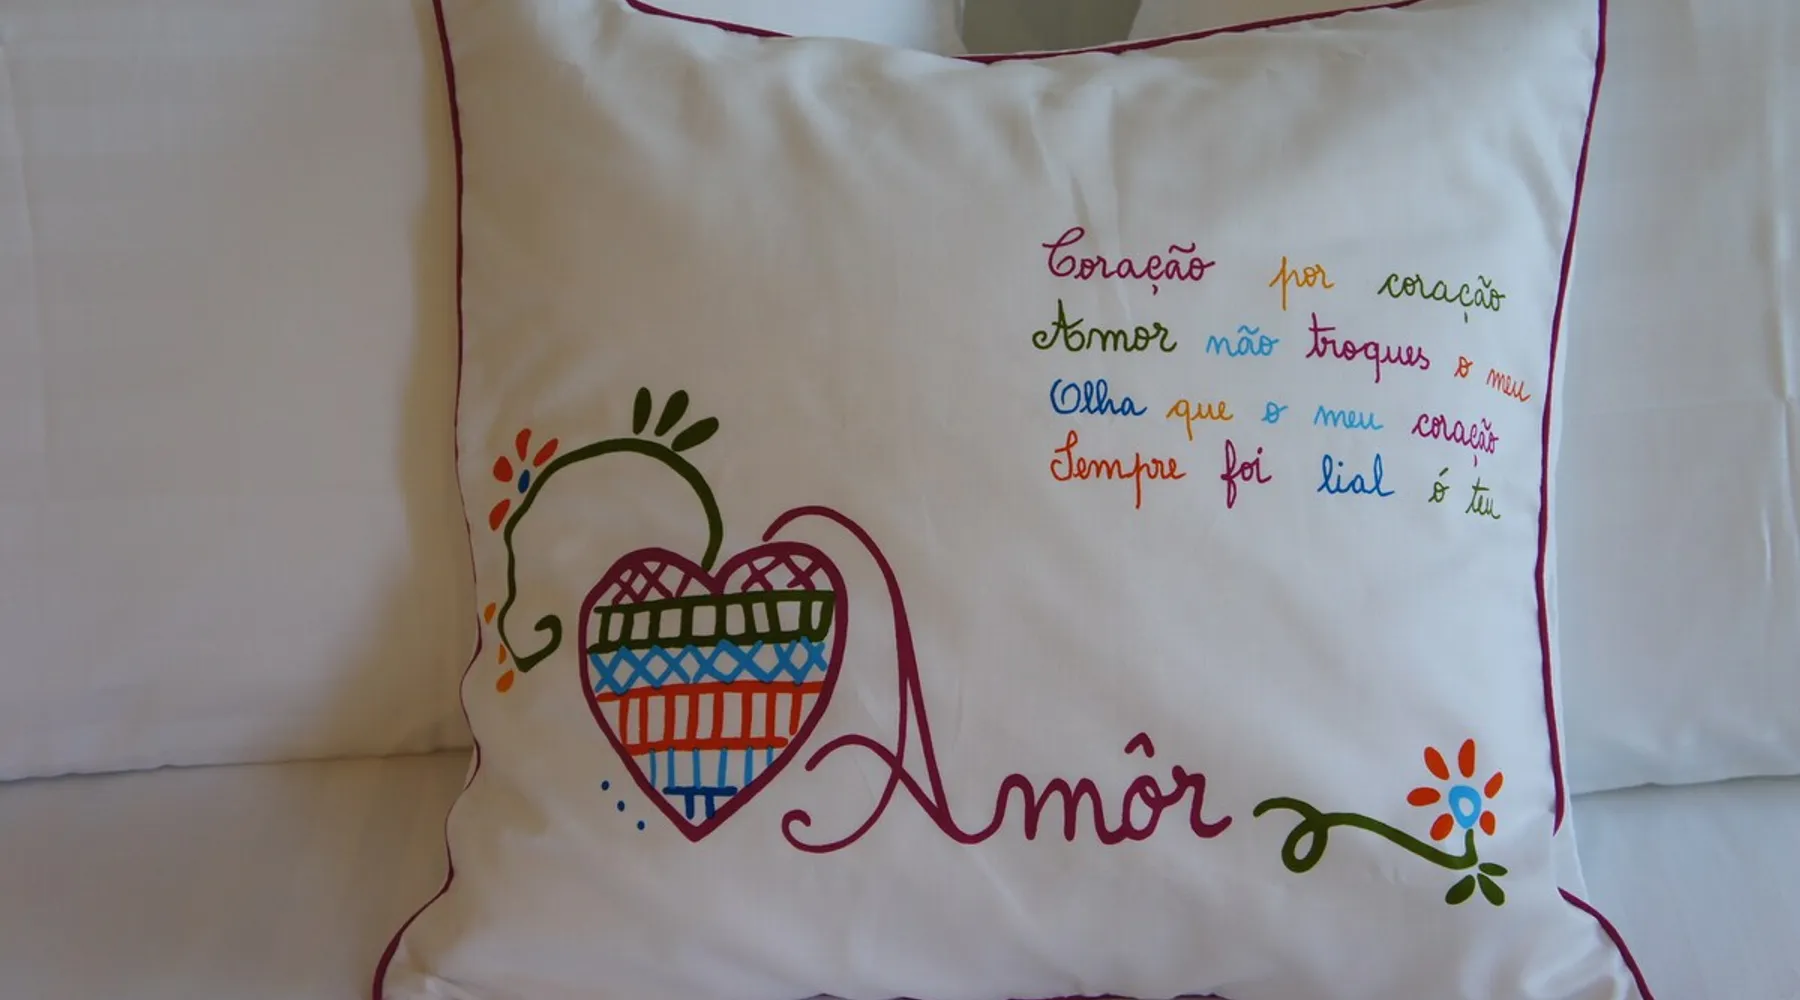 Coração por coração
Amor não troques o meu
Olha que o meu coração
Sempre foi lial ó teu
Amôr